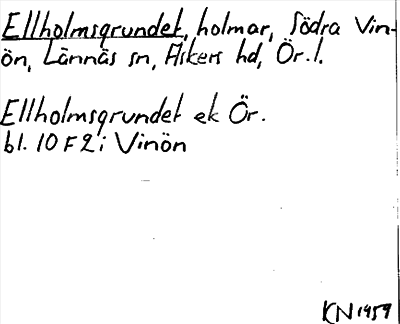 Ellholmsgrundet, holmar, Södra Vin-
ön, Lännäs sn, Askers hd, Ör. l.
Ellholmsgrundet ek Ör.
bl. 10 F 2 i Vinön
KN 1959